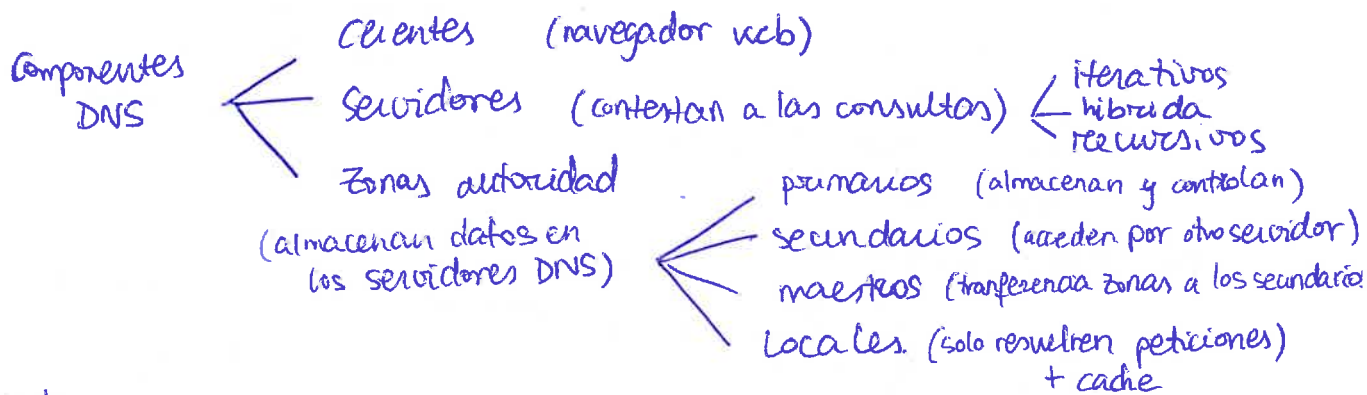 Componentes
DNS
Clientes (navegador web)
Servidores (contestan a las consultas)
iterativos
hibrida
recursivos
Zonas autoridad
(almacenan datos en
los servidores DNS)
primarios (almacenan y controlan)
secundarios (acceden por otro servidor)
maestros (tranferencia zonas a los secundario
Locales. (solo resuelven peticiones)
+ cache